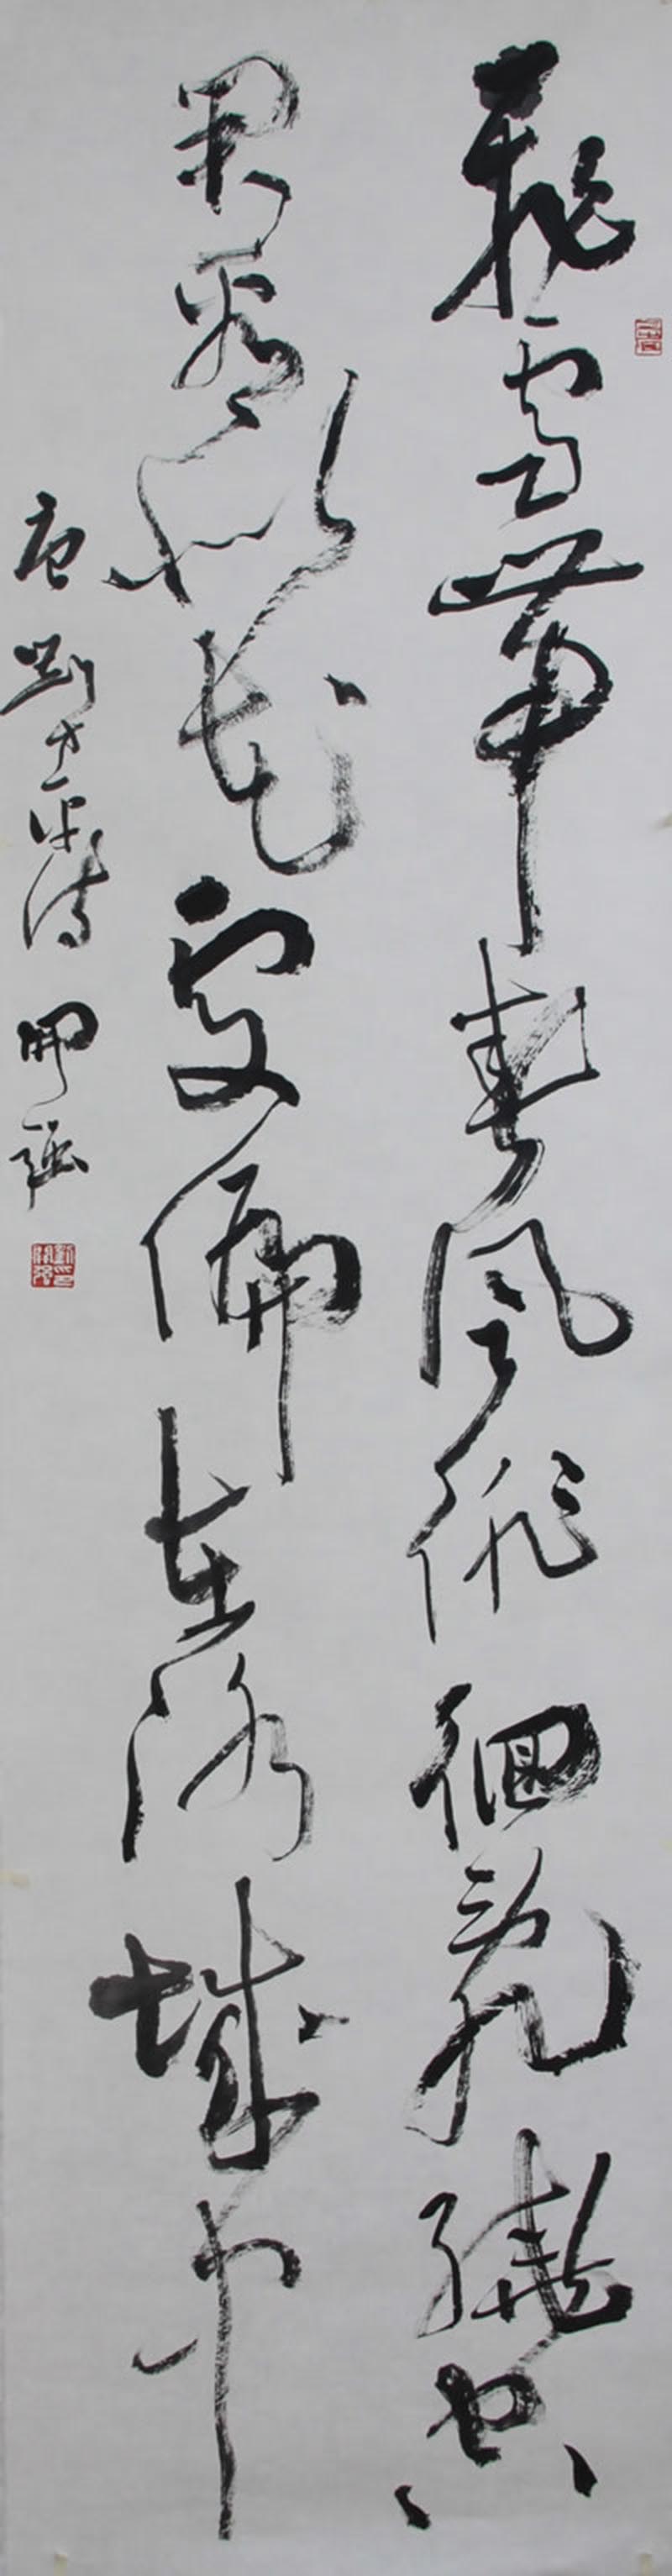 飛雪帶春風俳徊亂繞空
君看似花處偏在洛城中
唐劉方平詩 開强